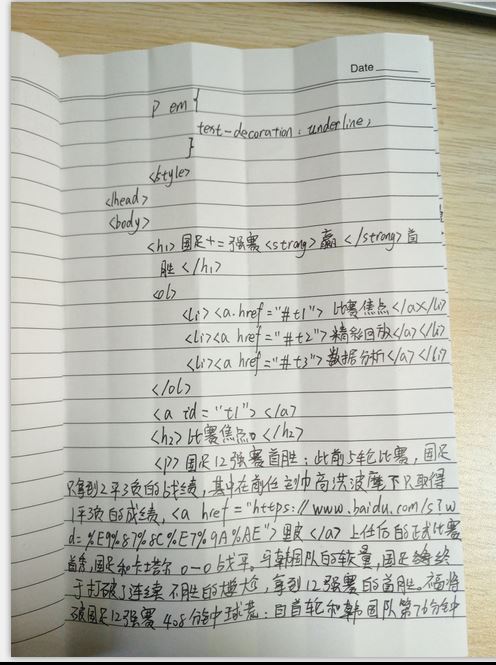 Date
p em {
text-decoration: underline;
}
<style>
</head>
<body>
<h1>国足十二强赛<strong>赢</strong>首
胜</h1>
<ol>
<li><a.href="#t1">比赛焦点</a></li>
<li><a href="#t2">精彩回放</a></li>
<li><a href="#t3">数据分析</a></li>
</ol>
<a id="t1"></a>
<h2>比赛焦点。</h2>
<p>国足12强赛首胜:此前5轮比赛,国足
只拿到2平3负的战绩,其中在前任主帅高洪波麾下只取得
1平3负的成绩,<a href="https://www.baidu.com/s?w
d=%E9%87%8C%E7%9A%AE">里皮</a>上任后的正式比赛
首秀,国足和卡塔尔0-0战平。与韩国队的较量,国足终
于打破了连续不胜的尴尬,拿到12强赛的首胜。
破国足12强赛408分钟球荒:自首轮和韩国队第76分钟